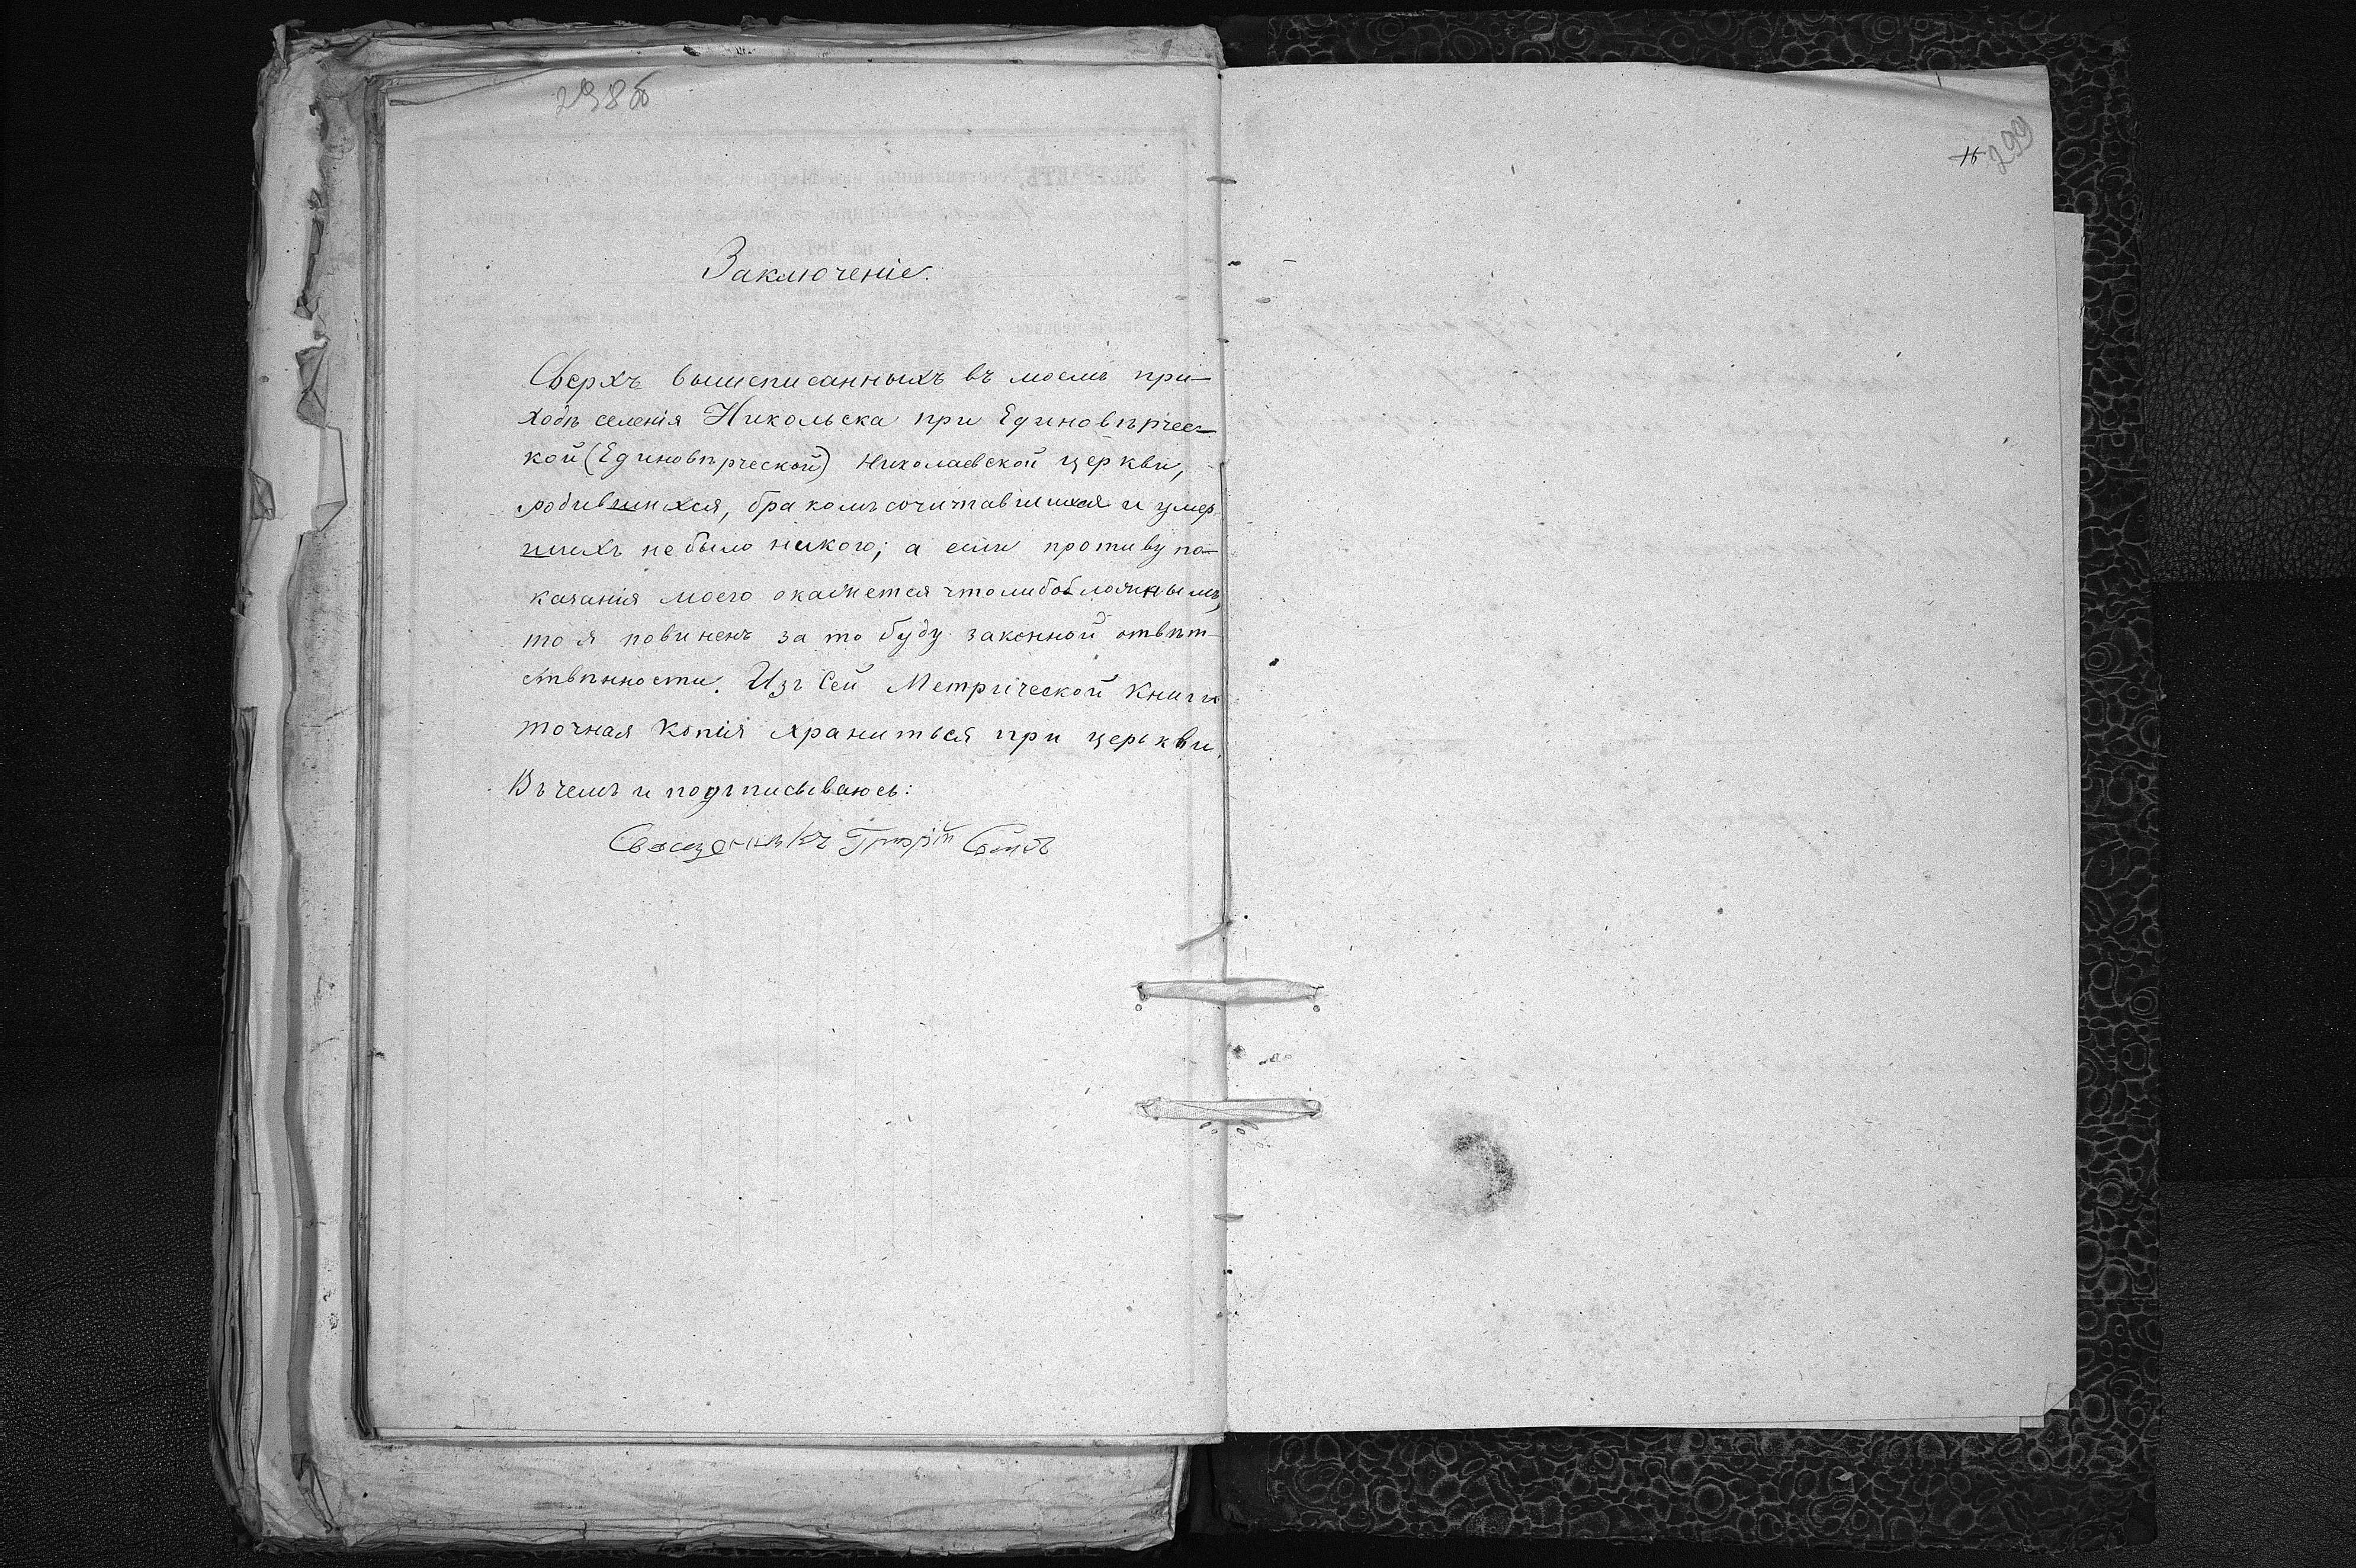 298об
Заключеніе.
Сверхъ вышеписанныхъ въ моемъ при-
ходѣ селенія Никольска при Единовѣрчес-
кой (Единовѣрческой) Николаевской церкви,
родившихся, бракомъ сочитавшихся и умер
шихъ не было никого; а если противу по-
казанія моего окажется что либо
то я повиненъ за то буду законной отвѣт-
ствѣнности. Изъ Сей Метрической Книги
точная копія храниться при церькви.
Въ чемъ и подъписываюсь:
Священникъ
299
16